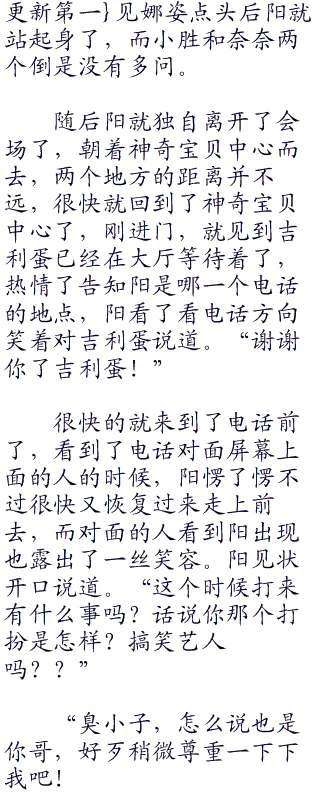 更新第一}见娜姿点头后阳就
站起身了，而小胜和奈奈两
个倒是没有多问。
随后阳就独自离开了会
场了，朝着神奇宝贝中心而
去，两个地方的距离并不
远，很快就回到了神奇宝贝
中心了，刚进门，就见到吉
利蛋已经在大厅等待着了，
热情了告知阳是哪一个电话
的地点，阳看了看电话方向
笑着对吉利蛋说道。“谢谢
你了吉利蛋！”
很快的就来到了电话前
了，看到了电话对面屏幕上
面的人的时候，阳愣了愣不
过很快又恢复过来走上前
去，而对面的人看到阳出现
也露出了一丝笑容。阳见状
开口说道。“这个时候打来
有什么事吗？话说你那个打
扮是怎样？搞笑艺人
吗？？”
“臭小子，怎么说也是
你哥，好歹稍微尊重一下下
我吧！